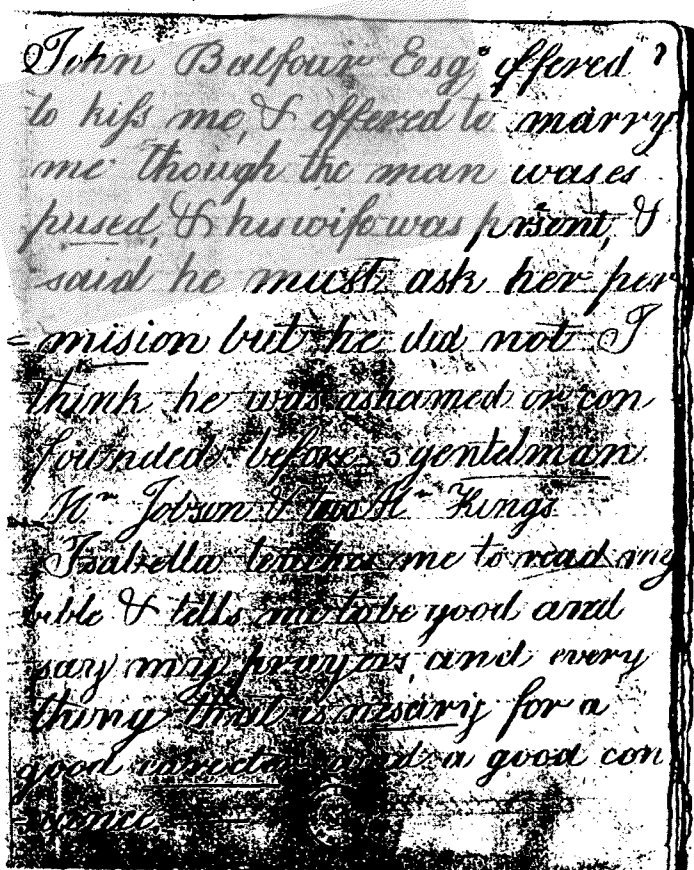 John Balfour Esgr offered
to kifs me, & offered to marry
me though the man was es
pused, & his wife was prsent, &
said he must ask her per
= mision but he did not I
think he was ashamed or con
founded before 3 gentelman
Mr Jobson & two Mr Kings
Isabella teaches me to read my
bible & tells me to be good and
say my prayers, and every
thing that is nesary for a
good and a good con